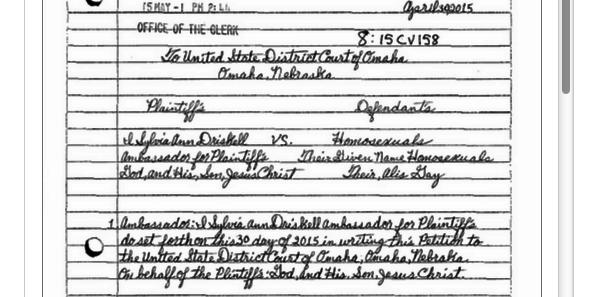 15 MAY -1 PM 2:44
April 30 2015
OFFICE OF THE CLERK
8:15CV158
To United State District Court of Omaha
Omaha, Nebraska
Plaintiff's Defendants
I Sylvia Ann Driskell VS. Homosexuals
Ambassador for Plaintiff's Their Given Name Homosexuals
God, and His, Son, Jesus Christ Their, Alis Gay
1. Ambassador: I Sylvia Ann Driskell ambassador for Plaintiff's
do set forth on this 30 day of 2015 in writing this Petition to
the United State District Court of Omaha, Omaha, Nebraska.
On behalf of the Plintiff's: God, and His, Son, Jesus Christ.